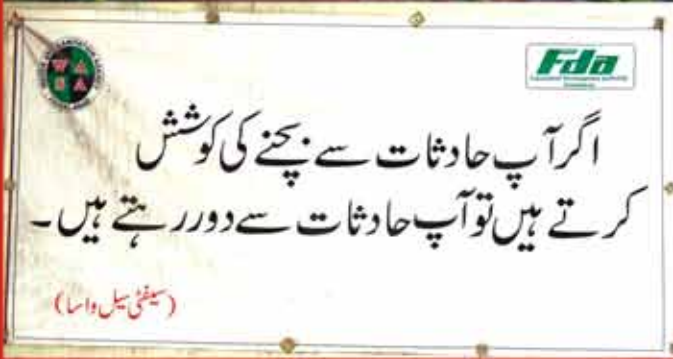 WASA
Fda
اگر آپ حادثات سے بچنے کی کوشش
کرتے ہیں تو آپ حادثات سے دور رہتے ہیں۔
(سیفٹی سیل واسا)